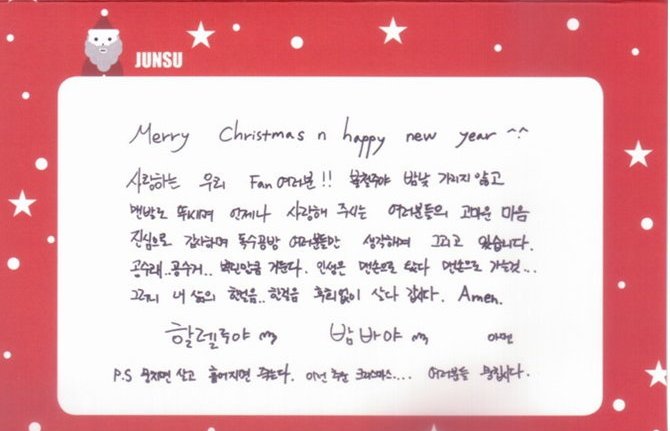 JUNSU
Merry Christmas n happy new year ^^
사랑하는 우리 Fan 여러분!! 불철주야 밤낮 가리지 않고
맨발로 뛰시며 언제나 사랑해 주시는 여러분들의 고마운 마음
진심으로 감사하며 독수공방 여러분들만 생각하며 그리고 있습니다.
공수래..공수거.. 만큼 거둔다. 인생은 맨손으로 왔다 맨손으로 가는것...
그러니 내 삶의 한걸음..한걸음 후회없이 살다 갑시다. Amen.
할렐루야 밤바야 아멘
P.S 뭉치면 살고 흩어지면 죽는다. 이번 추운 크리스마스.... 여러분들 뭉칩시다.